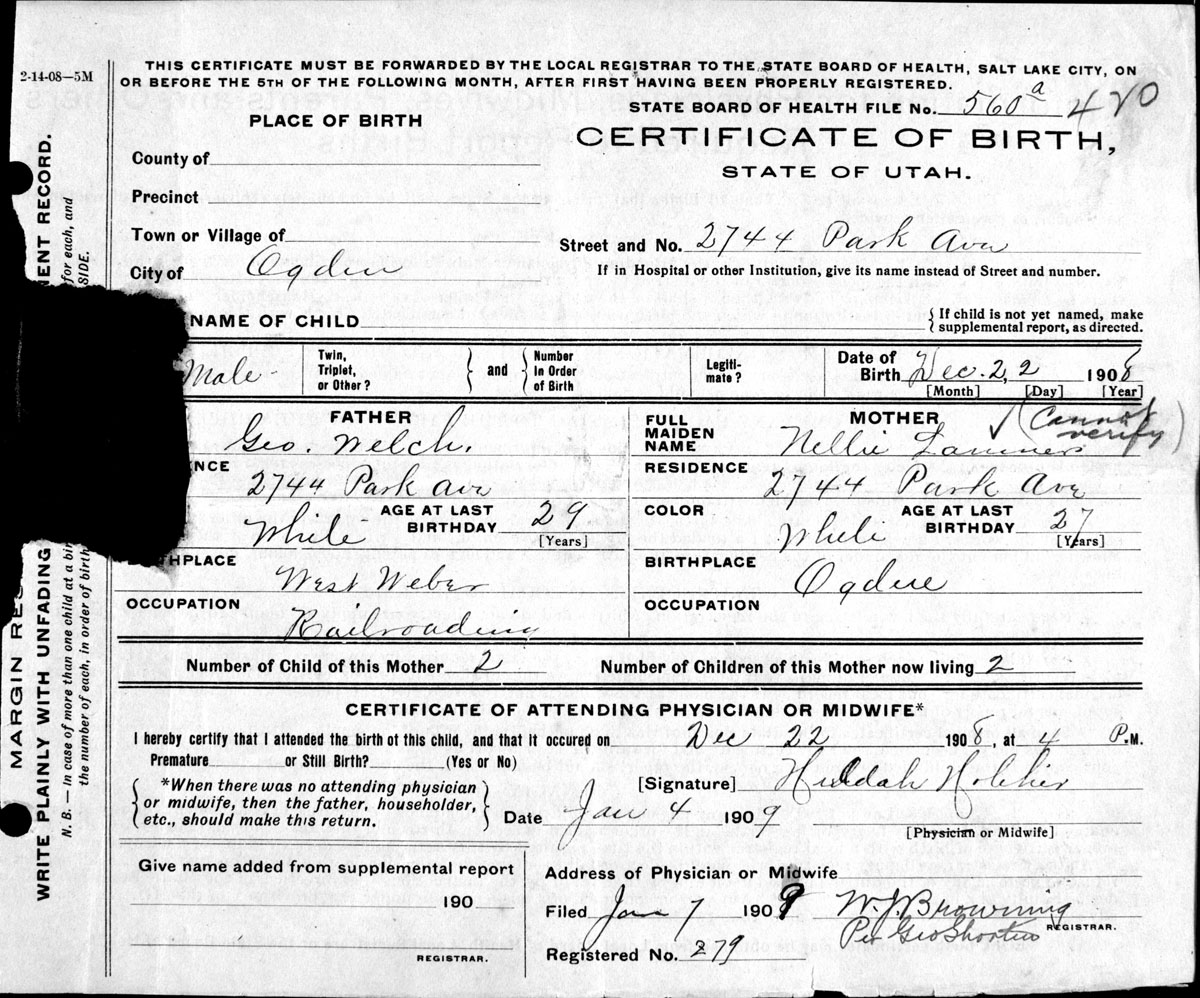 2-14-08—5M
THIS CERTIFICATE MUST BE FORWARDED BY THE LOCAL REGISTRAR TO THE STATE BOARD OF HEALTH, SALT LAKE CITY, ON
OR BEFORE THE 5TH OF THE FOLLOWING MONTH, AFTER FIRST HAVING BEEN PROPERLY REGISTERED.
STATE BOARD OF HEALTH FILE No. 560 a 420
PLACE OF BIRTH
CERTIFICATE OF BIRTH,
STATE OF UTAH.
County of
Precinct
Town or Village of
Street and No. 2744 Park Ave
City of Ogden
If in Hospital or other Institution, give its name instead of Street and number.
NAME OF CHILD
{ If child is not yet named, make
supplemental report, as directed.
Male
Twin,
Triplet,
or Other?
and
Number
In Order
of Birth
Legiti-
mate?
Date of
Birth Dec. 22 1908
[Month] [Day] [Year]
FATHER
Geo. Welch.
ENCE
2744 Park Ave
White
AGE AT LAST
BIRTHDAY 29
[Years]
THPLACE
West Weber
OCCUPATION
Railroading
MOTHER
FULL
MAIDEN
NAME
Nellie
✓ (Cannot
verify)
RESIDENCE
2744 Park Ave
COLOR White
AGE AT LAST
BIRTHDAY 27
[Years]
BIRTHPLACE
Ogden
OCCUPATION
Number of Child of this Mother 2
Number of Children of this Mother now living 2
CERTIFICATE OF ATTENDING PHYSICIAN OR MIDWIFE*
I hereby certify that I attended the birth of this child, and that it occured on Dec 22 1908, at 4 P.M.
Premature or Still Birth? (Yes or No)
*When there was no attending physician
or midwife, then the father, householder,
etc., should make this return.
[Signature] Huldah
Date Jan 4 1909
[Physician or Midwife]
Give name added from supplemental report
190
REGISTRAR.
Address of Physician or Midwife
Filed Jan 7 1909 W. J. Browning
Per Geo Shorten
REGISTRAR.
Registered No. 279
MARGIN RES
NENT RECORD.
WRITE PLAINLY WITH UNFADING
N. B. — In case of more than one child at a bir
for each, and
the number of each, in order of birth
SIDE.